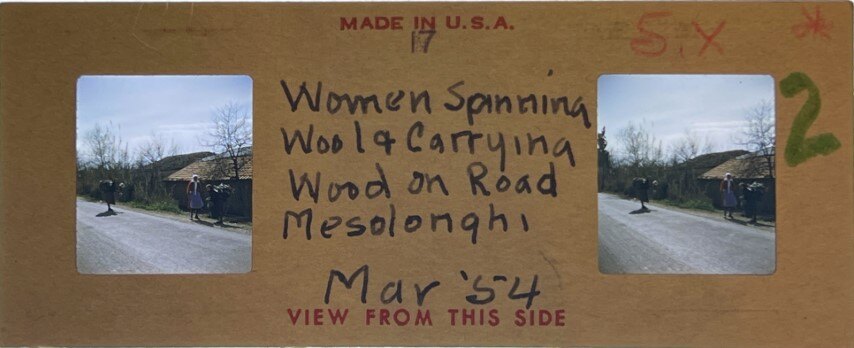 MADE IN U.S.A.
17
S.X *
2
Women Spinning
Wool & Carrying
Wood on Road
Mesolonghi
Mar '54
VIEW FROM THIS SIDE